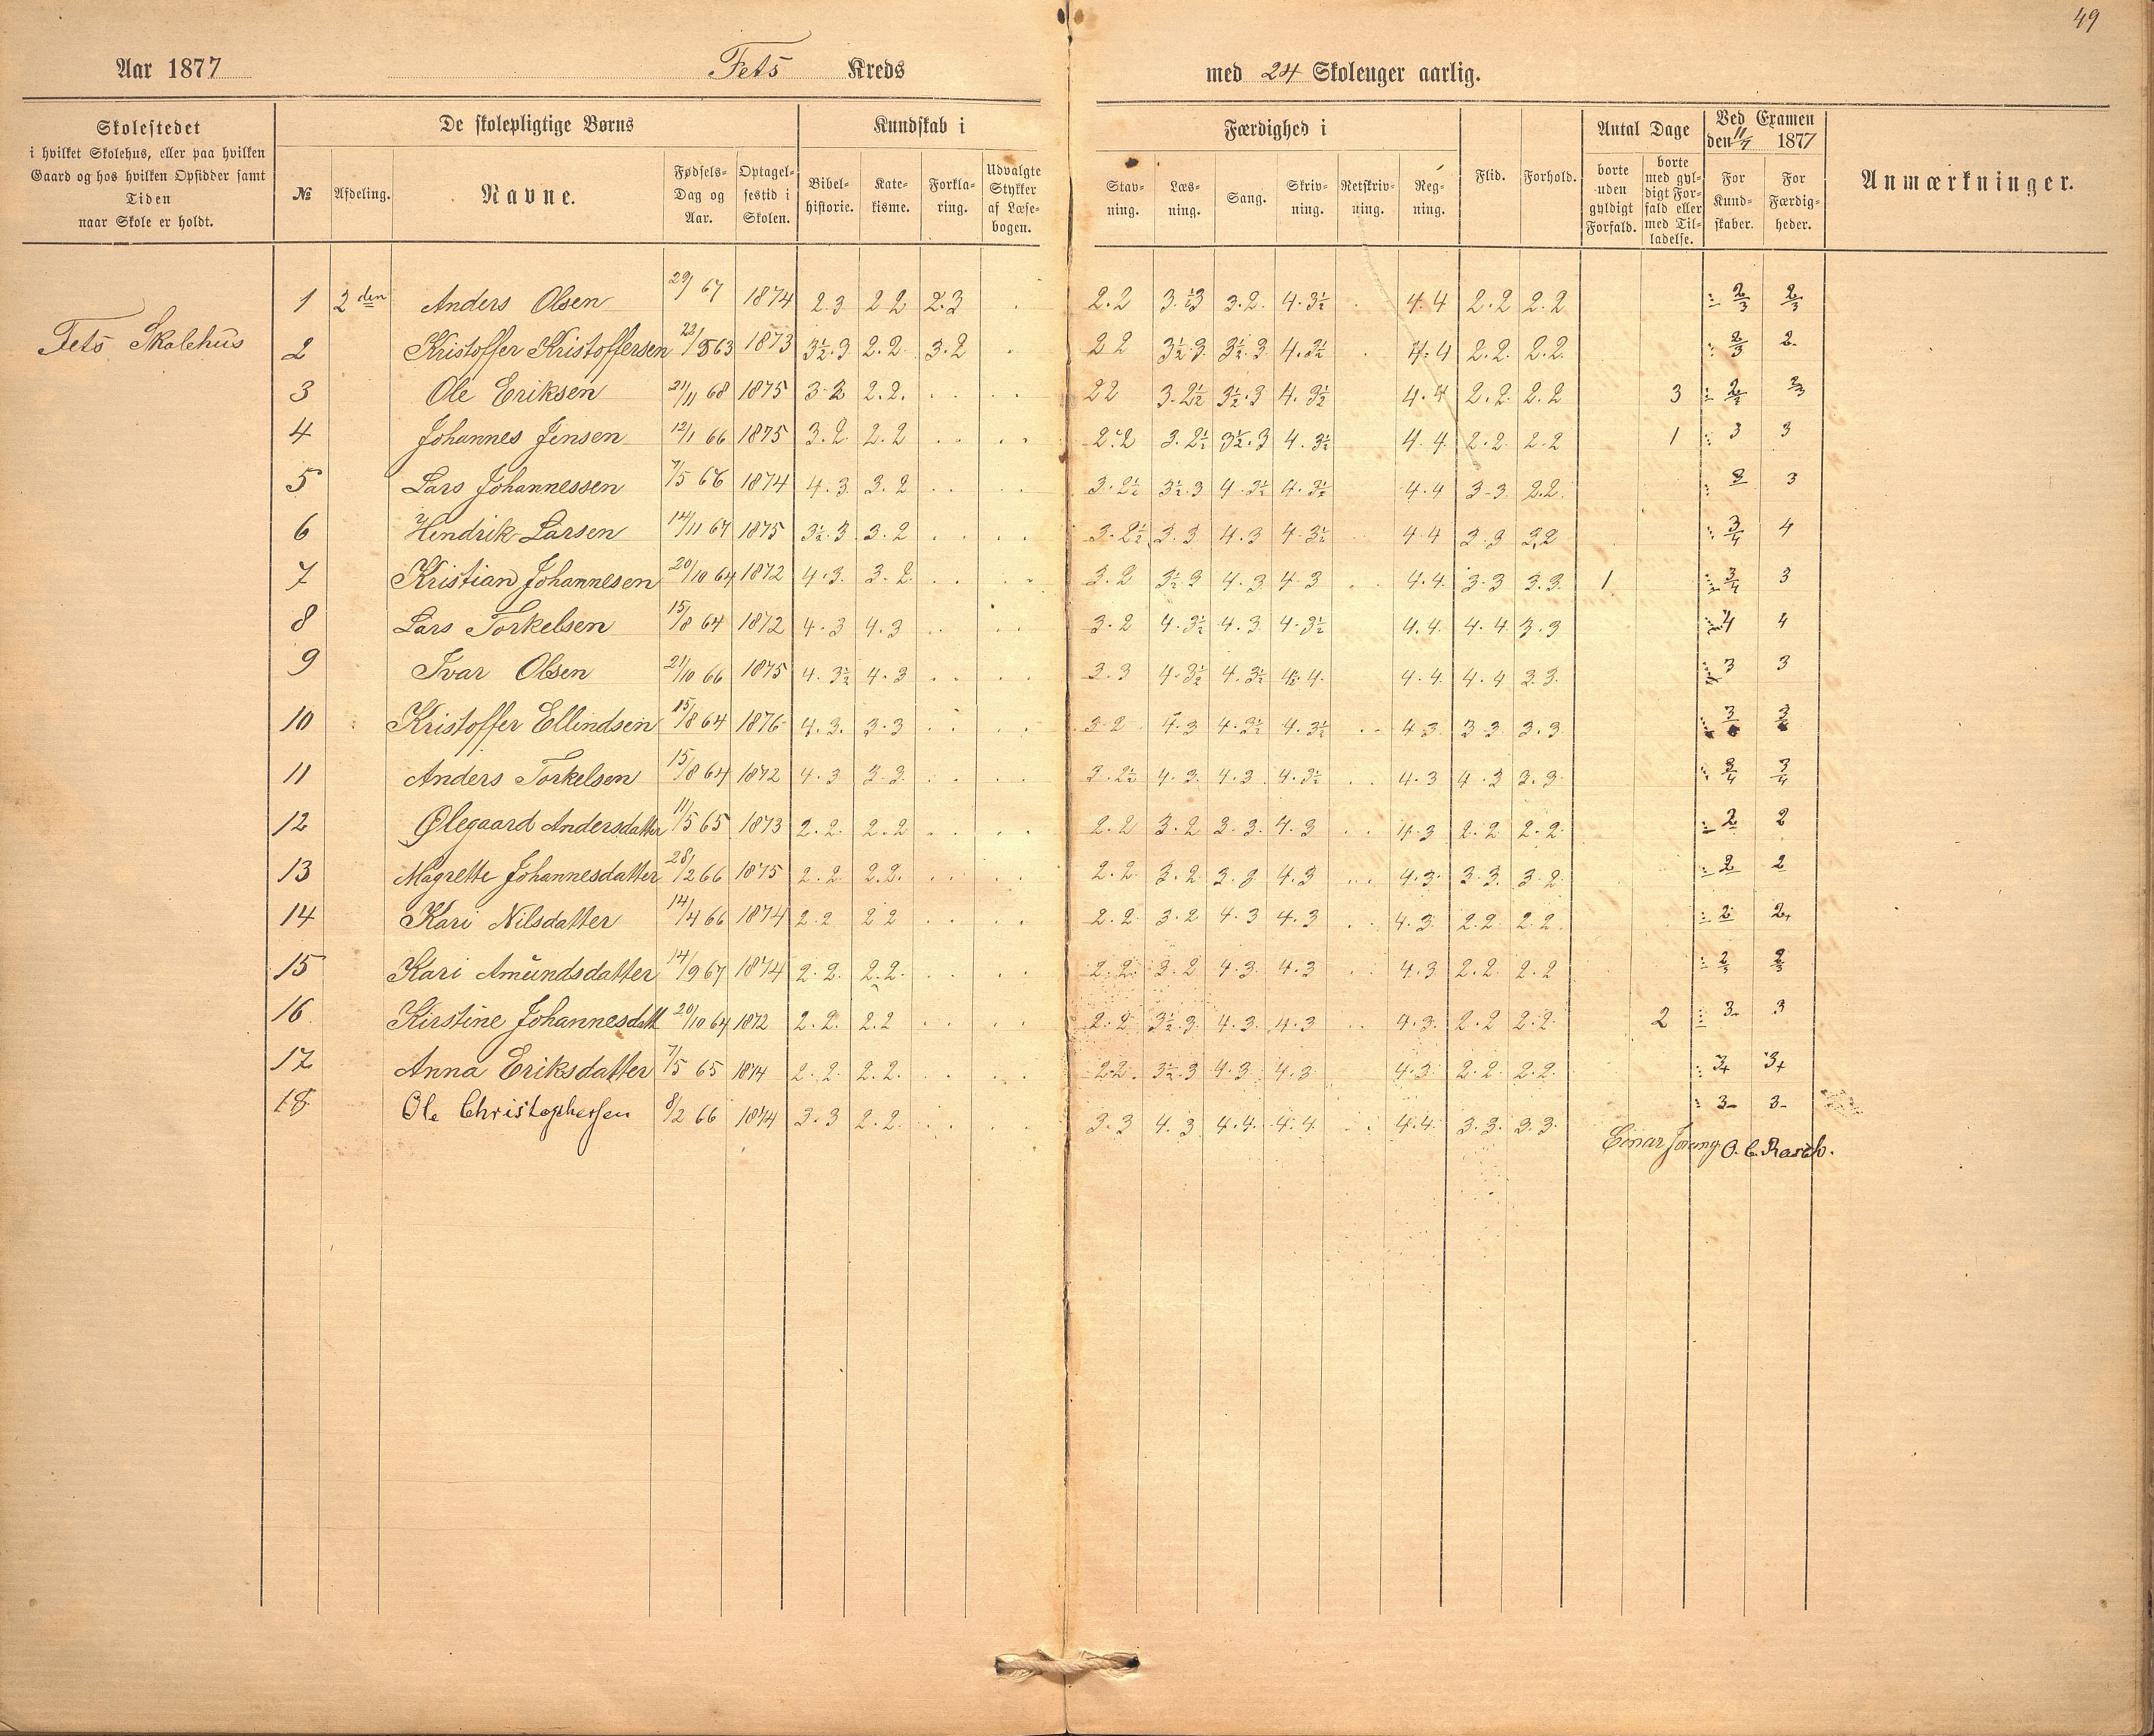 49
Aar 1877 Fets Kreds med 24 Skoleuger aarlig.
Skolestedet
i hvilket Skolehus, eller paa hvilken
Gaard og hos hvilken Opsidder samt
Tiden
naar Skole er holdt.
De skolepligtige Børns
№ Afdeling. Navne. Fødsels-Dag og Aar. Optagel-sestid i Skolen.
Kundskab i
Bibel-historie. Kate-kisme. Forkla-ring. Udvalgte Stykker af Læse-bogen.
Færdighed i
Stav-ning. Læs-ning. Sang. Skriv-ning. Retskriv-ning. Reg-ning.
Flid. Forhold.
Antal Dage
borte uden gyldigt Forfald. borte med gyl-digt For-fald eller med Til-ladelse.
Ved Examen
den 11/7 1877
For Kund-skaber. For Færdig-heder.
Anmærkninger.
Fets Skolehus
1 2den Anders Olsen 29/ 67 1874 2.3 2 2 2.3 2.2 3.½3 3.2. 4.3½ 4.4 2.2 2.2 2/3 2/3
2 Kristoffer Kristoffersen 1873 3½.3 2.2. 3.2 2 2 3½.3 3½.3 4.3½ 4.4 2.2. 2.2. 2/3 2.
3 Ole Eriksen 21/11 68 1875 3.2 2.2. 2 2 3.2½ 3½.3 4.3½ 4.4 2.2. 2.2 3
4 Johannes Jensen 12/1 66 1875 3.2 2.2 2.2 3.2½ 3½.3 4.3½ 4.4 2.2. 2.2 1 3 3
5 Lars Johannessen 7/5 66 1874 4.3 3.2 3.2½ 3½.3 4.3½ 4.3½ 4.4 3.3 2.2. 3 3
6 Hendrik Larsen 14/11 67 1875 3½.3 3.2 3.2½ 3.3 4.3 4.3½ 4.4 3.3 3.2 3/4 4
7 Kristian Johannesen 20/10 64 1872 4.3. 3.2. 3.2 3½.3 4.3 4.3 4.4. 3.3 3.3. 1 3/4 3
8 Lars Torkelsen 15/8 64 1872 4.3 4.3 3.2 4.3½ 4.3 4.3½ 4.4. 4.4 3.3 4 4
9 Ivar Olsen 21/10 66 1875 4.3½ 4.3 3.3 4.3½ 4.3½ 4½.4. 4.4. 4.4 3.3. 3 3
10 Kristoffer Ellindsen 15/8 64 1876 4.3. 3.3 3.2 4.3 4.3½ 4.3½ 4.3 3.3 3.3
11 Anders Torkelsen 15/8 64 1872 4.3 3.3. 3.2½ 4.3. 4.3 4.3½ 4.3 4.3 3.3. 3/4 3/4
12 Ølegaard Andersdatter 11/5 65 1873 2.2. 2.2 2.2 3.2 3.3. 4.3 4.3 2.2 2.2. 2 2
13 Magrette Johannesdatter 28/2 66 1875 2.2. 2.2. 2.2 3.2 3.3 4.3 4.3. 3.3. 3.2 2 2
14 Kari Nilsdatter 14/4 66 1874 2.2 2 2 2.2 3.2 4.3 4.3 4.3. 2.2. 2.2. 2 2+
15 Kari Amundsdatter 14/9 67 1874 2.2. 2.2. 2.2. 3.2 4.3. 4.3 4.3 2.2. 2.2 2/3 2/3
16 Kirstine Johannesdatt 20/10 64 1872 2.2. 2.2 2.2 3½.3. 4.3. 4.3 4.3. 2.2 2.2. 2 3- 3
17 Anna Eriksdatter 7/5 65 1874 2.2. 2.2. 2.2. 3½.3 4.3 4.3 4.3 2.2. 2.2. 3+ 3+
18 Ole Christophersen 8/2 66 1874 3.3 2.2. 3.3 4.3 4.4. 4.4 4.4. 3.3. 3.3. 3- 3-
Einar O. C. Rasch.